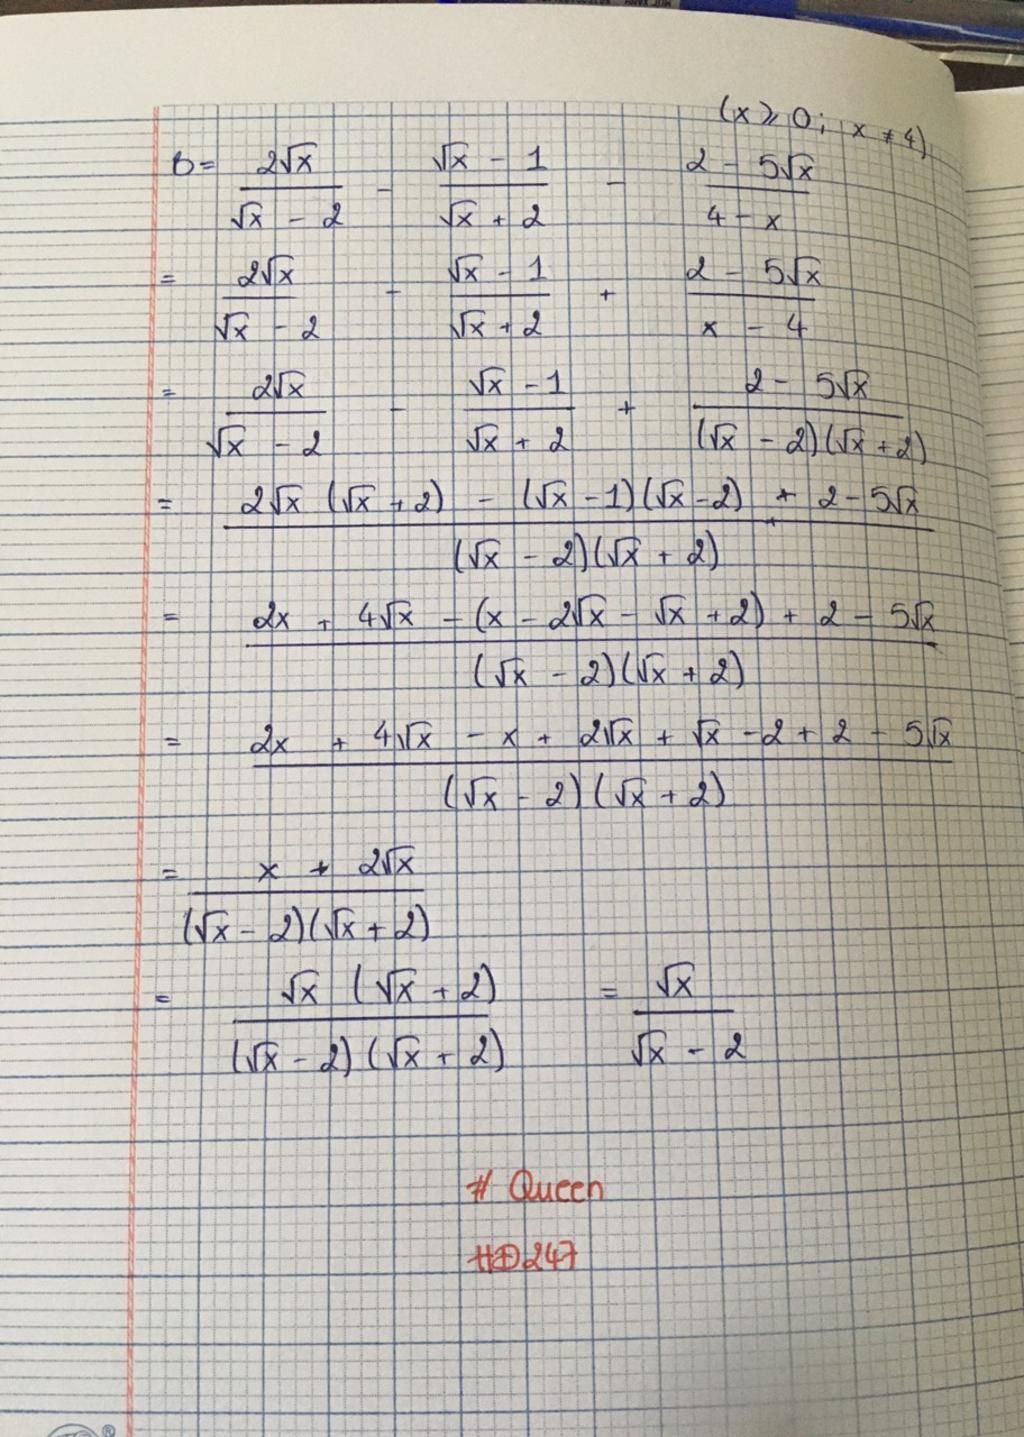 (x ≥ 0; x ≠ 4)
B = 2√x / (√x - 2) - (√x - 1) / (√x + 2) - (2 - 5√x) / (4 - x)
= 2√x / (√x - 2) - (√x - 1) / (√x + 2) + (2 - 5√x) / (x - 4)
= 2√x / (√x - 2) - (√x - 1) / (√x + 2) + (2 - 5√x) / ((√x - 2)(√x + 2))
= (2√x (√x + 2) - (√x - 1)(√x - 2) + 2 - 5√x) / ((√x - 2)(√x + 2))
= (2x + 4√x - (x - 2√x - √x + 2) + 2 - 5√x) / ((√x - 2)(√x + 2))
= (2x + 4√x - x + 2√x + √x - 2 + 2 - 5√x) / ((√x - 2)(√x + 2))
= (x + 2√x) / ((√x - 2)(√x + 2))
= (√x (√x + 2)) / ((√x - 2)(√x + 2)) = √x / (√x - 2)
# Queen
HĐ247